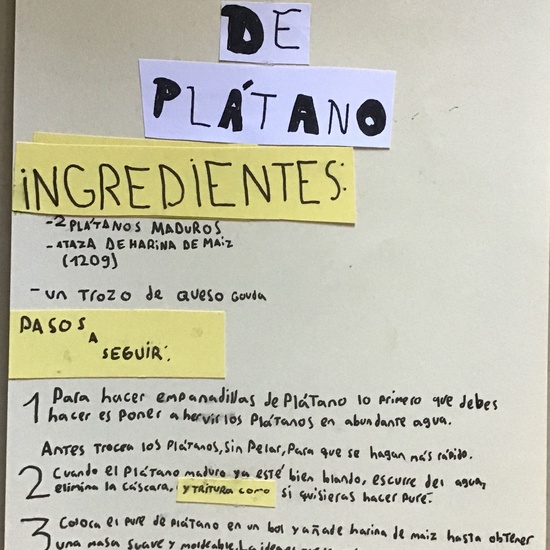 DE
PLÁTANO
iNGREDiENTES:
-2 PLÁTANOS MADUROS
-1TAZA DE HARiNA DE MAiZ
(120g)
-un trozo de queso gouda
PASOS
A
SEGUiR:
1 Para hacer empanadillas de Plátano lo primero que debes
hacer es poner a hervir los Plátanos en abundante agua.
Antes trocea los Plátanos, sin Pelar, Para que se hagan más rápido.
2 Cuando el Plátano maduro ya esté bien blando, escurre del agua,
elimina la cáscara, y tritura como si quisieras hacer puré.
3 Coloca el pure de plátano en un bol y añade harina de maiz hasta obtener
una masa suave y moldeable. La